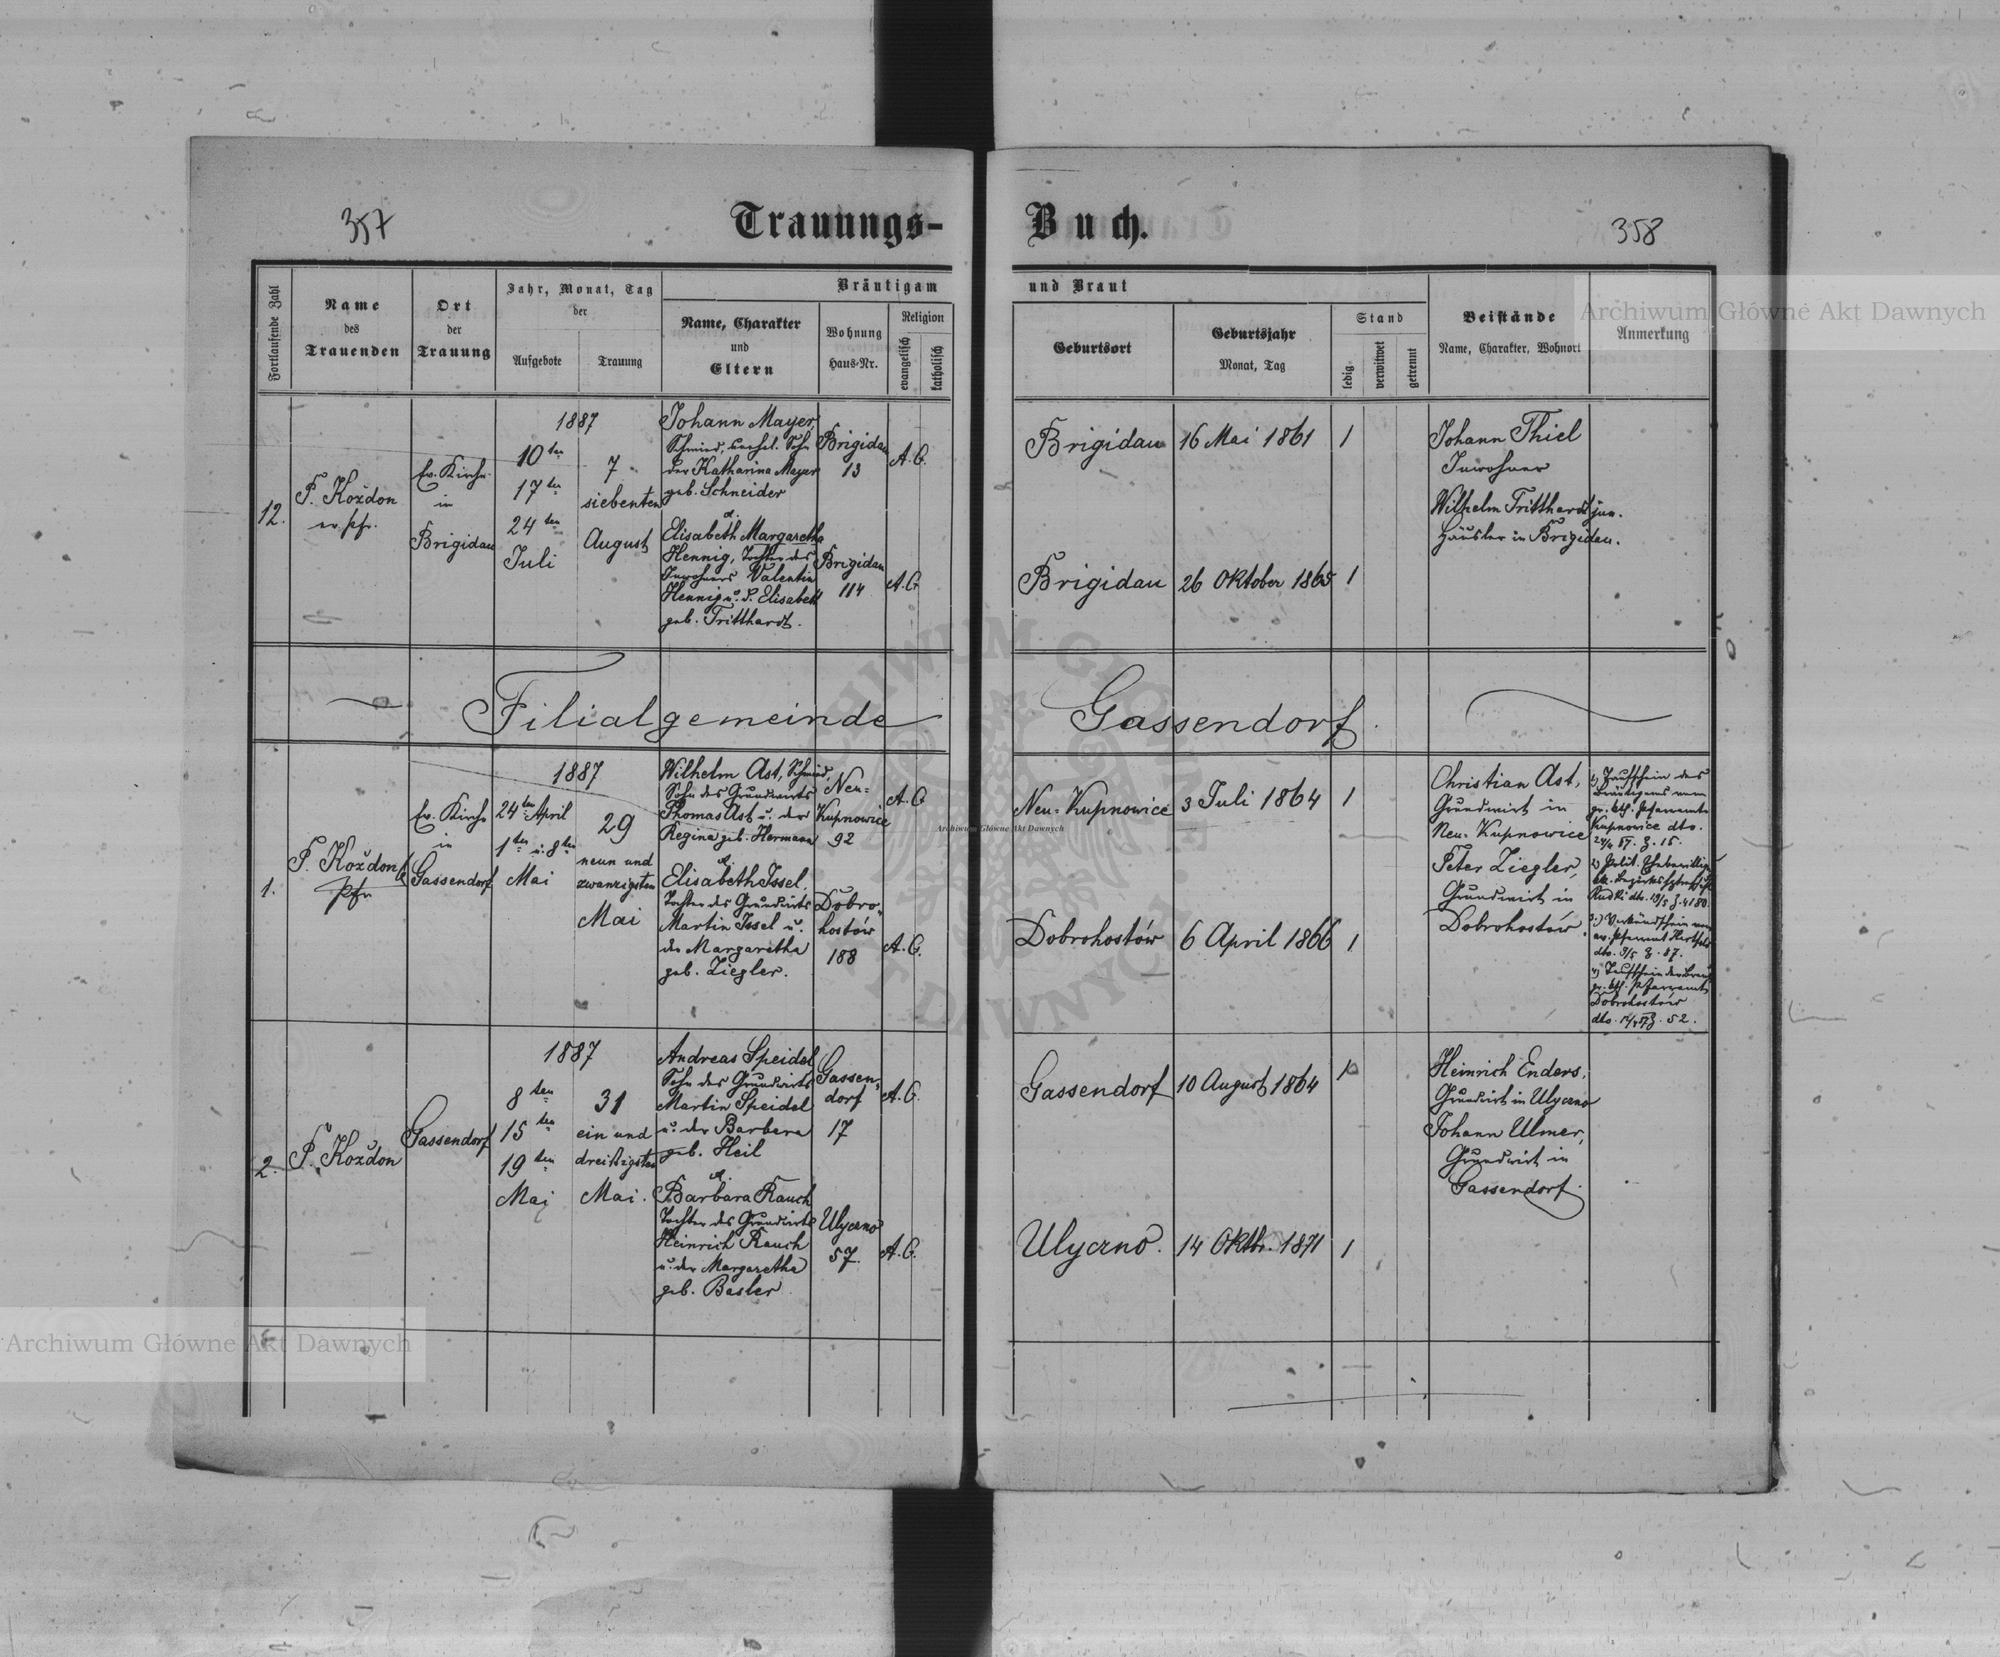 357
Trauungs-
Buch.
358
Fortlaufende Zahl
Name
des
Trauenden
Ort
der
Trauung
Jahr, Monat, Tag
der
Aufgebote
Trauung
Bräutigam
Name, Charakter
und
Eltern
Wohnung
Haus-Nr.
Religion
evangelisch
katholisch
und Braut
Geburtsort
Geburtsjahr
Monat, Tag
Stand
ledig
verwitwet
getrennt
Beistände
Name, Charakter, Wohnort
Anmerkung
12.
P. Koždon
ev. Pfr.
Ev. Kirche
in
Brigidau
1887
10ten
17ten
24ten
Juli
7
siebenten
August
Johann Mayer,
Schmied, unehel. Sohn
der Katharina Mayer
geb. Schneider
Brigidau
13
A. C.
Elisabeth Margaretha
Hennig, Tochter des
Inwohners Valentin
Hennig u. d. Elisabeth
geb. Tritthardt.
Brigidau
114
A. C.
Brigidau
16 Mai 1861
1
Brigidau
26 Oktober 1865
1
Johann Thiel
Inwohner
Wilhelm Tritthardt jun.
Häusler in Brigidau.
Filialgemeinde
Gassendorf.
1.
P. Koždon
Pfr.
Ev. Kirche
in
Gassendorf
1887
24ten April
1ten u. 8ten
Mai
29
neun und
zwanzigsten
Mai
Wilhelm Ast, Schmied,
Sohn des Grundwirts
Thomas Ast u. der
Regina geb. Hermann
Neu-
Kupnowice
92
A. C.
Elisabeth Issel,
Tochter des Grundwirts
Martin Issel u.
der Margaretha
geb. Ziegler.
Dobro-
hostów
188
A. C.
Neu-Kupnowice
3 Juli 1864
1
Dobrohostów
6 April 1866
1
Christian Ast,
Grundwirt in
Neu-Kupnowice
Peter Ziegler,
Grundwirt in
Dobrohostów.
1) Taufschein des
Bräutigams vom
gr. kth. Pfarramte
Kupnowice dto.
24/4 87. Z. 15.
2) Polit. Ehebewillig
Rudki dto. 13/5 Z. 4180.
3.) Verkündschein vom
ev. Pfarramt
dto. 9/5 Z. 87.
4) Taufschein der Braut
gr. kth. Pfarramts
Dobrohostów
Z. 52.
2.
P. Koždon
Gassendorf
1887
8ten
15ten
19ten
Mai
31
ein und
dreißigsten
Mai.
Andreas Speidel
Sohn des Grundwirts
Martin Speidel
u. der Barbara
geb. Heil
Gassen-
dorf
17
A. C.
Barbara Rauch
Tochter des Grundwirts
Heinrich Rauch
u. der Margaretha
geb. Basler
Ulyczno
57.
A. C.
Gassendorf
10 August 1864
1
Ulyczno.
14 Oktbr. 1871
1
Heinrich Enders,
Grundwirt in Ulyczno
Johann Ulmer,
Grundwirt in
Gassendorf.
Archiwum Główne Akt Dawnych
Archiwum Główne Akt Dawnych
Archiwum Główne Akt Dawnych